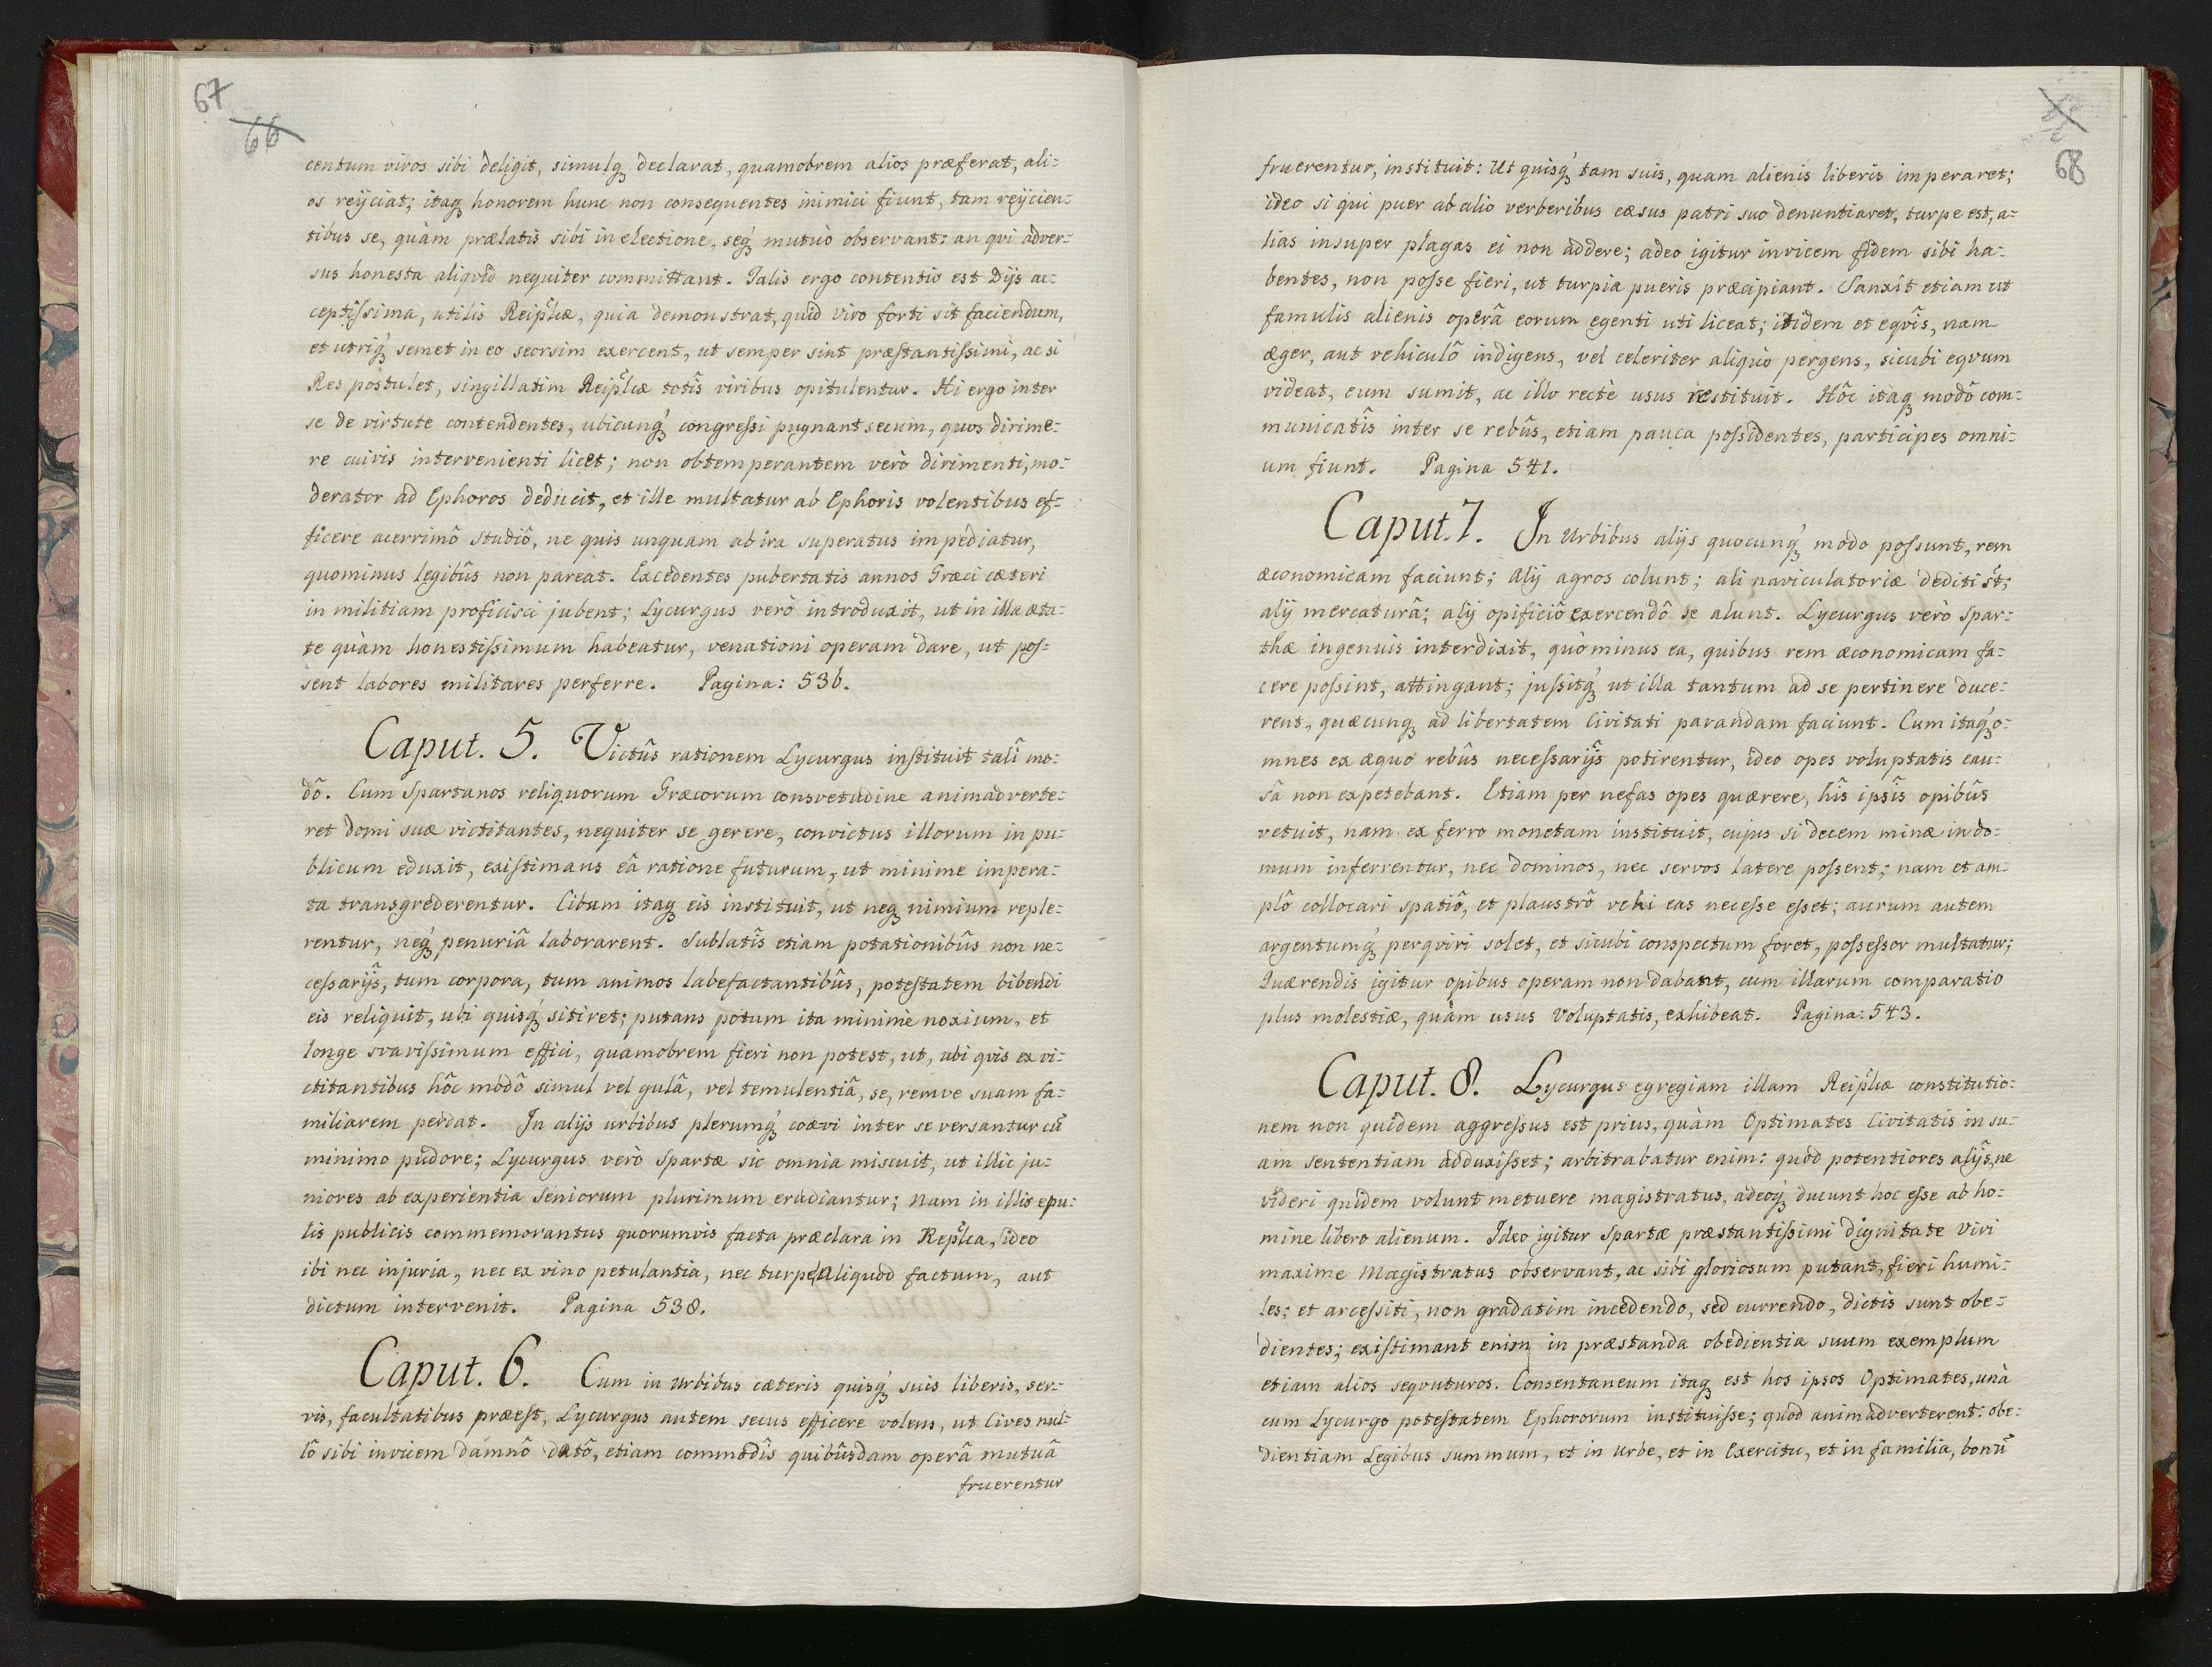 67
66
centum viros sibi deligit, simulq₃ declarat, quamobrem alios præferat, ali=
os reijciat; itaq₃ honorem hunc non consequentes inimici fiunt, tam reijcien=
tibus se, quàm prælatis sibi in electione, seq₃ mutuò observant: an qvi adver=
sus honesta aliqvid nequiter committant. Talis ergo contentio est Dijs ac=
ceptissima, utilis Reip̃licæ, quia demonstrat, quid viro forti sit faciendum,
et utriq₃ semet in eo seorsim exercent, ut semper sint præstantissimi, ac si
Res postulet, singillatim Reip̃licæ totîs viribus opitulentur. Hi ergo inter
se de virtute contendentes, ubicunq₃ congressi pugnant secum, quos dirime=
re cuivis intervenienti licet; non obtemperantem verò dirimenti, mo=
derator ad Ephoros deducit, et ille multatur ab Ephoris volentibus ef=
ficere acerrimô studiô, ne quis unquam ab ira superatus impediatur,
quominus legibûs non pareat. Excedentes pubertatis annos Græci cæteri
in militiam proficisci jubent; Lycurgus verò introduxit, ut in illa æta=
te quàm honestissimum habeatur, venationi operam dare, ut pos=
sent labores militares perferre. Pagina: 536.
Caput. 5. Victûs rationem Lycurgus instituit talî mo=
dô. Cum Spartanos reliquorum Græcorum consvetudine animadverte=
ret domi suæ victitantes, nequiter se gerere, convictus illorum in pu=
blicum eduxit, existimans eâ ratione futurum, ut minime impera=
ta transgrederentur. Cibum itaq₃ eis instituit, ut neq₃ nimium reple=
rentur, neq₃ penuriâ laborarent. Sublatîs etiam potationibûs non ne=
cessarijs, tum corpora, tum animos labefactantibûs, potestatem bibendi
eis reliquit, ubi quisq₃ sitiret; putans potum ita minimè noxium, et
longe svavissimum effici, quamobrem fieri non potest, ut, ubi qvis ex vi=
ctitantibus hôc modô simul vel gulâ, vel temulentiâ, se, remve suam fa=
miliarem perdat. In alijs urbibus plerumq₃ coævi inter se versantur cũ
minimo pudore; Lycurgus verò Spartæ sic omnia miscuit, ut illic ju=
niores ab experientia seniorum plurimum erudiantur; Nam in illis epu=
lis publicis commemorantus quorumvis facta præclara in Rep̃lica, ideo
ibi nec injuria, nec ex vino petulantia, nec turpe aliquod factum, aut
dictum intervenit. Pagina 538.
Caput. 6. Cum in urbibus cæteris quisq₃ suis liberis, ser=
vis, facultatibus præest, Lycurgus autem secus efficere volens, ut Cives nul=
lô sibi invicem damnô datô, etiam commodîs quibûsdam operâ mutuâ
fruerentur
68
fruerentur, instituit: Ut quisq₃ tam suis, quam alienis liberis imperaret;
ideo si qui puer ab alio verberibus cæsus patri suo denuntiaret, turpe est, a=
lias insuper plagas ei non addere; adeo igitur invicem fidem sibi ha=
bentes, non posse fieri, ut turpia pueris præcipiant. Sanxit etiam ut
famulis alienis operâ eorum egenti uti liceat; itidem et eqvîs, nam
æger, aut vehiculô indigens, vel celeriter aliquò pergens, sicubi eqvum
videat, eum sumit, ac illo rectè usus restituit. Hôc itaq₃ modô com=
municatîs inter se rebûs, etiam pauca possidentes, participes omni=
um fiunt. Pagina 541.
Caput. 7. In Urbibus alijs quocunq₃ modo possunt, rem
œconomicam faciunt; Alij agros colunt; ali naviculatoriæ dediti st̃;
alij mercaturâ; alij opificiô exercendô se alunt. Lycurgus verò Spar=
thæ ingenuis interdixit, quò minus ea, quibus rem œconomicam fa=
cere possint, attingant; jussitq₃ ut illa tantum ad se pertinere duce=
rent, quæcunq₃ ad libertatem Civitati parandam faciunt. Cum itaq₃ o=
mnes ex æquo rebûs necessarijs potirentur, ideo opes voluptatis cau=
sâ non expetebant. Etiam per nefas opes quærere, hîs ipsîs opibûs
vetuit, nam ex ferro monetam instituit, cujus si decem minæ in do=
mum inferrentur, nec dominos, nec servos latere possent; nam et am=
plô collocari spatiô, et plaustrô vehi eas necesse esset; aurum autem
argentumq₃ perqviri solet, et sicubi conspectum foret, possessor multatur;
Quærendis igitur opibus operam non dabant, cum illarum comparatio
plus molestiæ, quàm usus Voluptatis, exhibeat. Pagina: 543.
Caput. 8. Lycurgus egregiam illam Reip̃licæ constitutio=
nem non quidem aggressus est prius, quàm Optimates Civitatis in su=
am sententiam adduxisset; arbitrabatur enim: quod potentiores alijs, ne
videri quidem volunt metuere magistratus, adeoq₃ ducunt hoc esse ab ho=
mine libero alienum. Ideo igitur Spartæ præstantissimi dignitate Viri
maxime Magistratus observant, ac sibi gloriosum putant, fieri humi=
les; et arcessiti, non gradatim incedendo, sed currendo, dictis sunt obe=
dientes; existimant enim in præstanda obedientia suum exemplum
etiam alios seqvuturos. Consentaneum itaq₃ est hos ipsos Optimates, unà
cum Lycurgo potestatem Ephororum instituisse; quod animadverterent: obe=
dientiam Legibus summum, et in Urbe, et in Exercitu, et in familia, bonũ